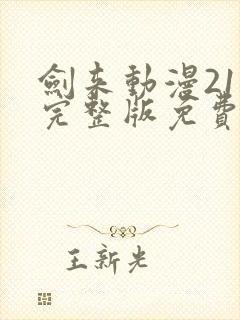 劍來動漫21
完整版免費
王新光